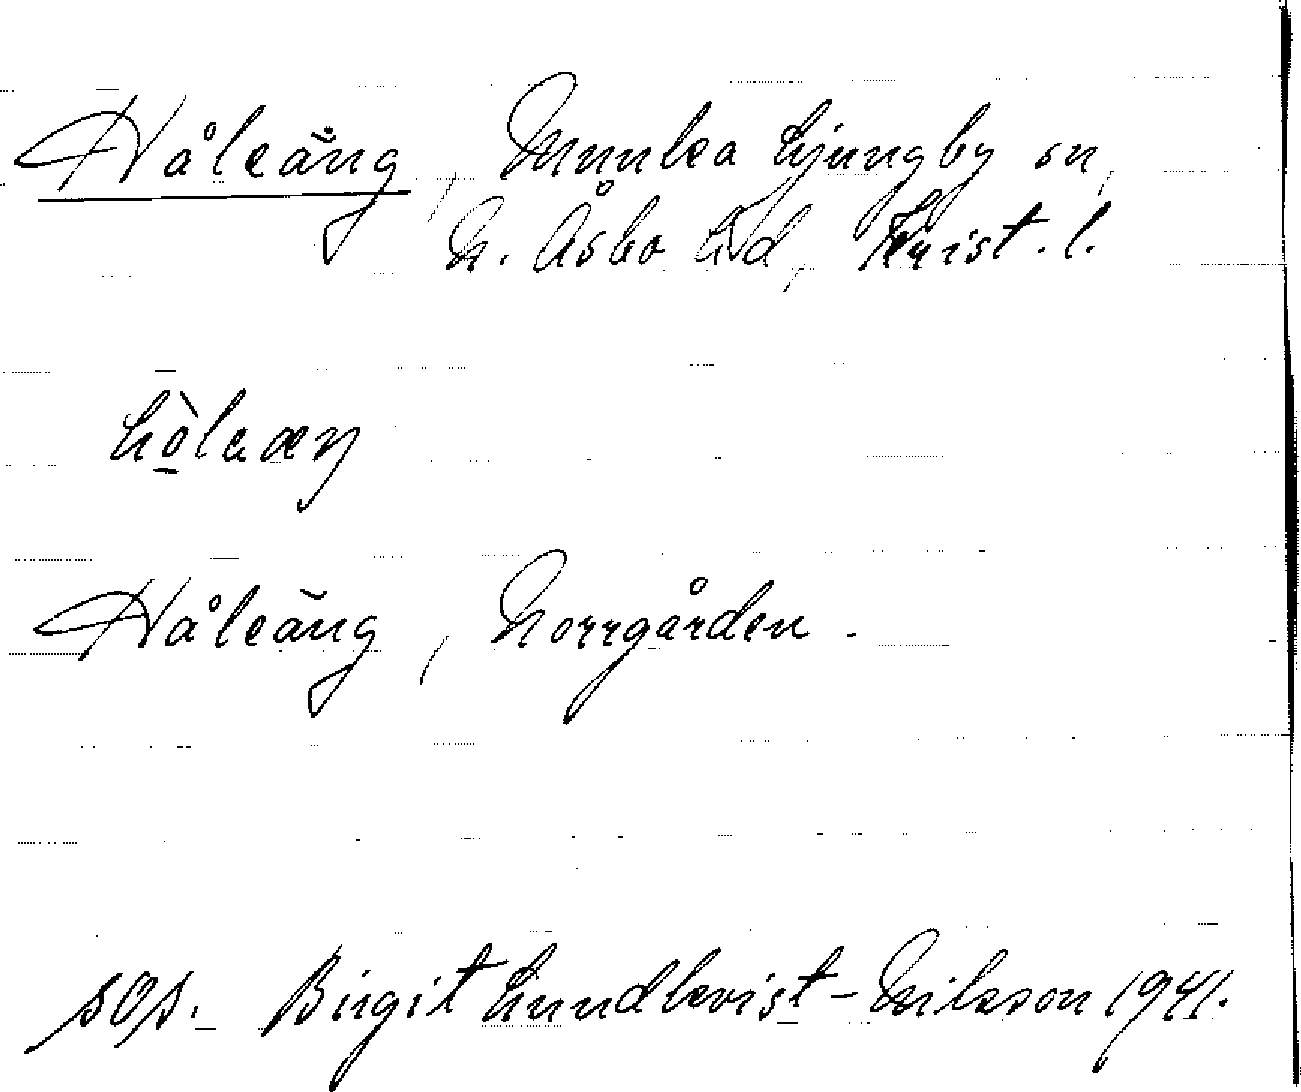 Håleäng, Munka Ljungby sn,
N. Åsbo hd, Krist. l.
Håleäng, Norrgården.
sos. Birgit Lundkvist-Nilsson 1941.